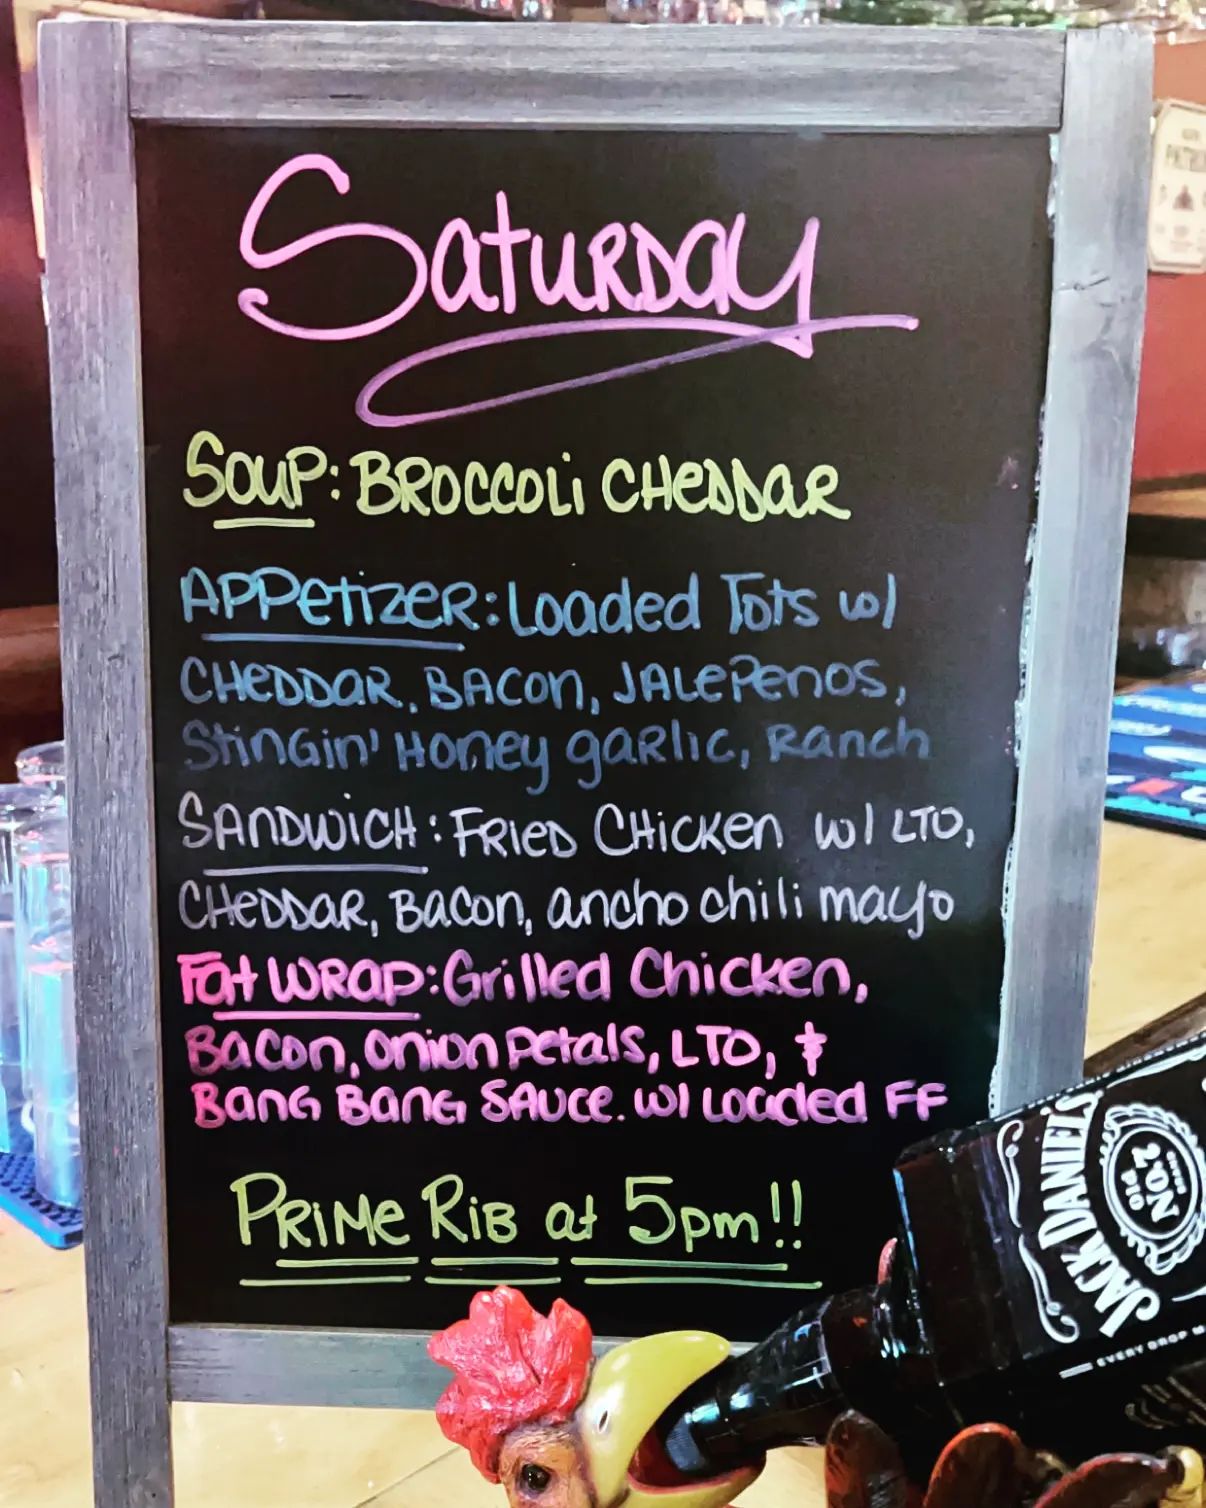 Saturday
Soup: Broccoli Cheddar
Appetizer: Loaded Tots w/
Cheddar, Bacon, Jalepenos,
Stingin' Honey garlic, Ranch
Sandwich: Fried Chicken w/ LTO,
Cheddar, Bacon, ancho chili mayo
Fat Wrap: Grilled Chicken,
Bacon, Onion Petals, LTO, &
Bang Bang Sauce. w/ Loaded FF
Prime Rib at 5pm!!
JACK DANIEL'S
EVERY DROP M